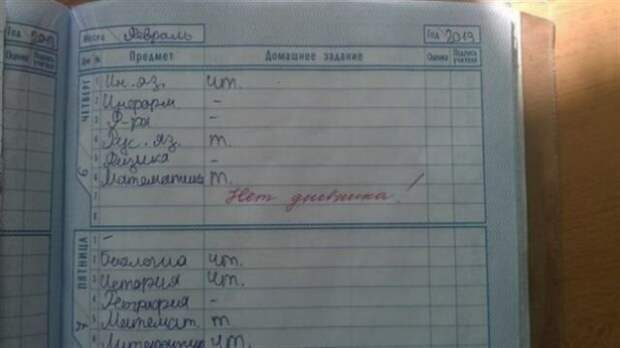 Год 2019
Оценка Подпись учителя
Месяц Февраль Год 2019
Дни № Предмет Домашнее задание Оценка Подпись учителя
ЧЕТВЕРГ
6
1 Ин. яз. чт.
2 Информ -
3 Ф-ра -
4 Рус. яз. т.
5 Физика -
6 Математика т.
7 Нет дневника!
8
ПЯТНИЦА
1 -
2 Биология чт.
3 История чт.
4 География -
5 Математ т
6 Литератур чт.